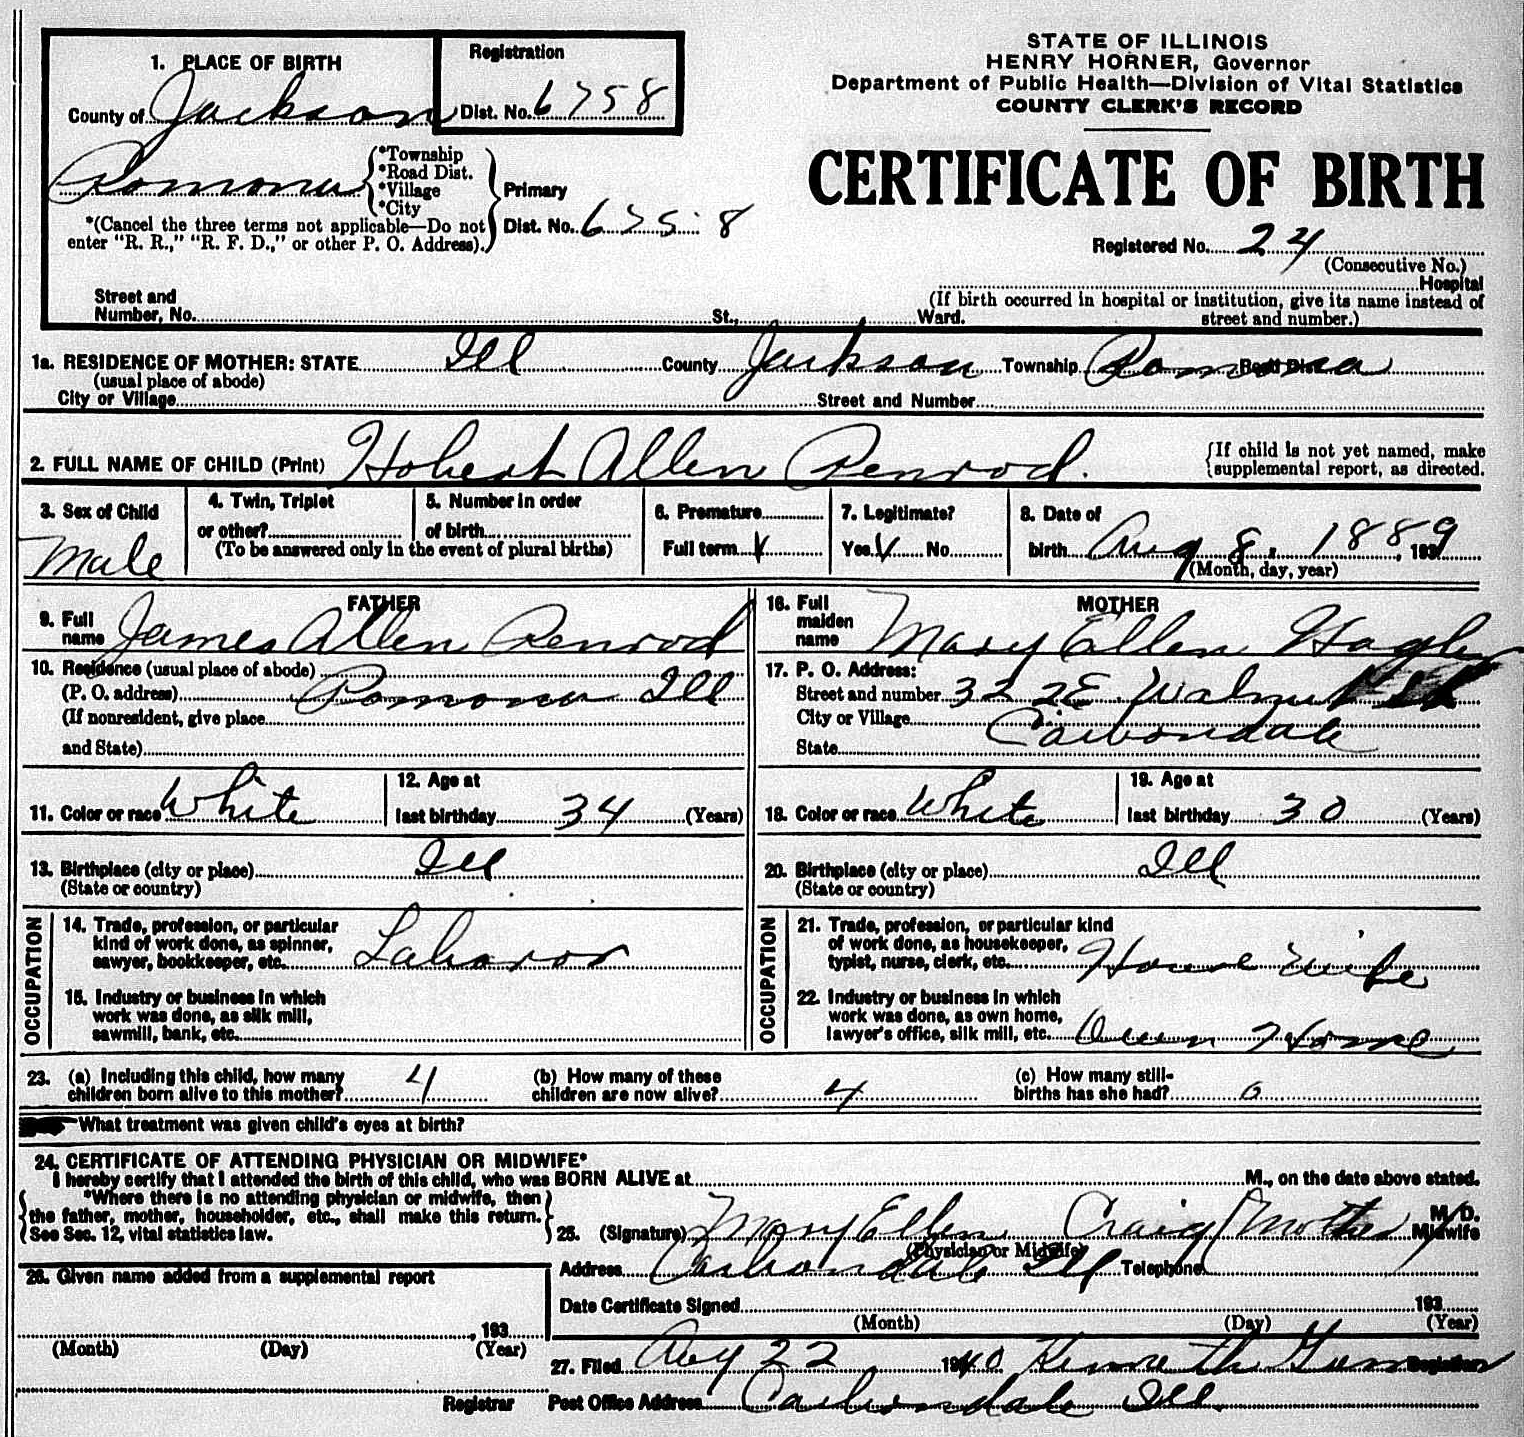 STATE OF ILLINOIS
HENRY HORNER, Governor
Department of Public Health—Division of Vital Statistics
COUNTY CLERK'S RECORD
CERTIFICATE OF BIRTH
Registered No. 24
(Consecutive No.)
Hospital
(If birth occurred in hospital or institution, give its name instead of
street and number.)
1. PLACE OF BIRTH
County of Jackson
Registration
Dist. No. 6758
Pomona
*Township
*Road Dist.
*Village
*City
Primary
Dist. No. 6758
*(Cancel the three terms not applicable—Do not
enter "R. R.," "R. F. D.," or other P. O. Address).
Street and
Number, No. St., Ward.
1a. RESIDENCE OF MOTHER: STATE Ill County Jackson Township Pomona Road Dist.
(usual place of abode)
City or Village Street and Number
2. FULL NAME OF CHILD (Print) Hobert Allen Penrod.
{If child is not yet named, make
supplemental report, as directed.
3. Sex of Child
Male
4. Twin, Triplet
or other?
5. Number in order
of birth
(To be answered only in the event of plural births)
6. Premature
Full term √
7. Legitimate?
Yes √ No
8. Date of
birth Aug 8, 1889, 193
(Month, day, year)
FATHER
9. Full
name James Allen Penrod
10. Residence (usual place of abode)
(P. O. address) Pomona Ill
(If nonresident, give place
and State)
11. Color or race White
12. Age at
last birthday 34 (Years)
13. Birthplace (city or place) Ill
(State or country)
OCCUPATION
14. Trade, profession, or particular
kind of work done, as spinner,
sawyer, bookkeeper, etc. Laboror
15. Industry or business in which
work was done, as silk mill,
sawmill, bank, etc.
MOTHER
16. Full
maiden
name Mary Ellen Hagler
17. P. O. Address:
Street and number 322 E. Walnut St
City or Village Carbondale
State
18. Color or race White
19. Age at
last birthday 30 (Years)
20. Birthplace (city or place) Ill
(State or country)
OCCUPATION
21. Trade, profession, or particular kind
of work done, as housekeeper,
typist, nurse, clerk, etc. House Wife
22. Industry or business in which
work was done, as own home,
lawyer's office, silk mill, etc. Own Home
23. (a) Including this child, how many
children born alive to this mother? 4
(b) How many of these
children are now alive? 4
(c) How many still-
births has she had? 0
What treatment was given child's eyes at birth?
24. CERTIFICATE OF ATTENDING PHYSICIAN OR MIDWIFE*
I hereby certify that I attended the birth of this child, who was BORN ALIVE at M., on the date above stated.
*Where there is no attending physician or midwife, then
the father, mother, householder, etc., shall make this return.
See Sec. 12, vital statistics law.
25. (Signature) Mary Ellen Craig (Mother) M. D.
Midwife
(Physician or Midwife)
Address Carbondale Ill Telephone
Date Certificate Signed 193
(Month) (Day) (Year)
26. Given name added from a supplemental report
, 193
(Month) (Day) (Year)
Registrar
27. Filed Aug 22 1940 Kenneth Registrar
Post Office Address Carbondale Ill.